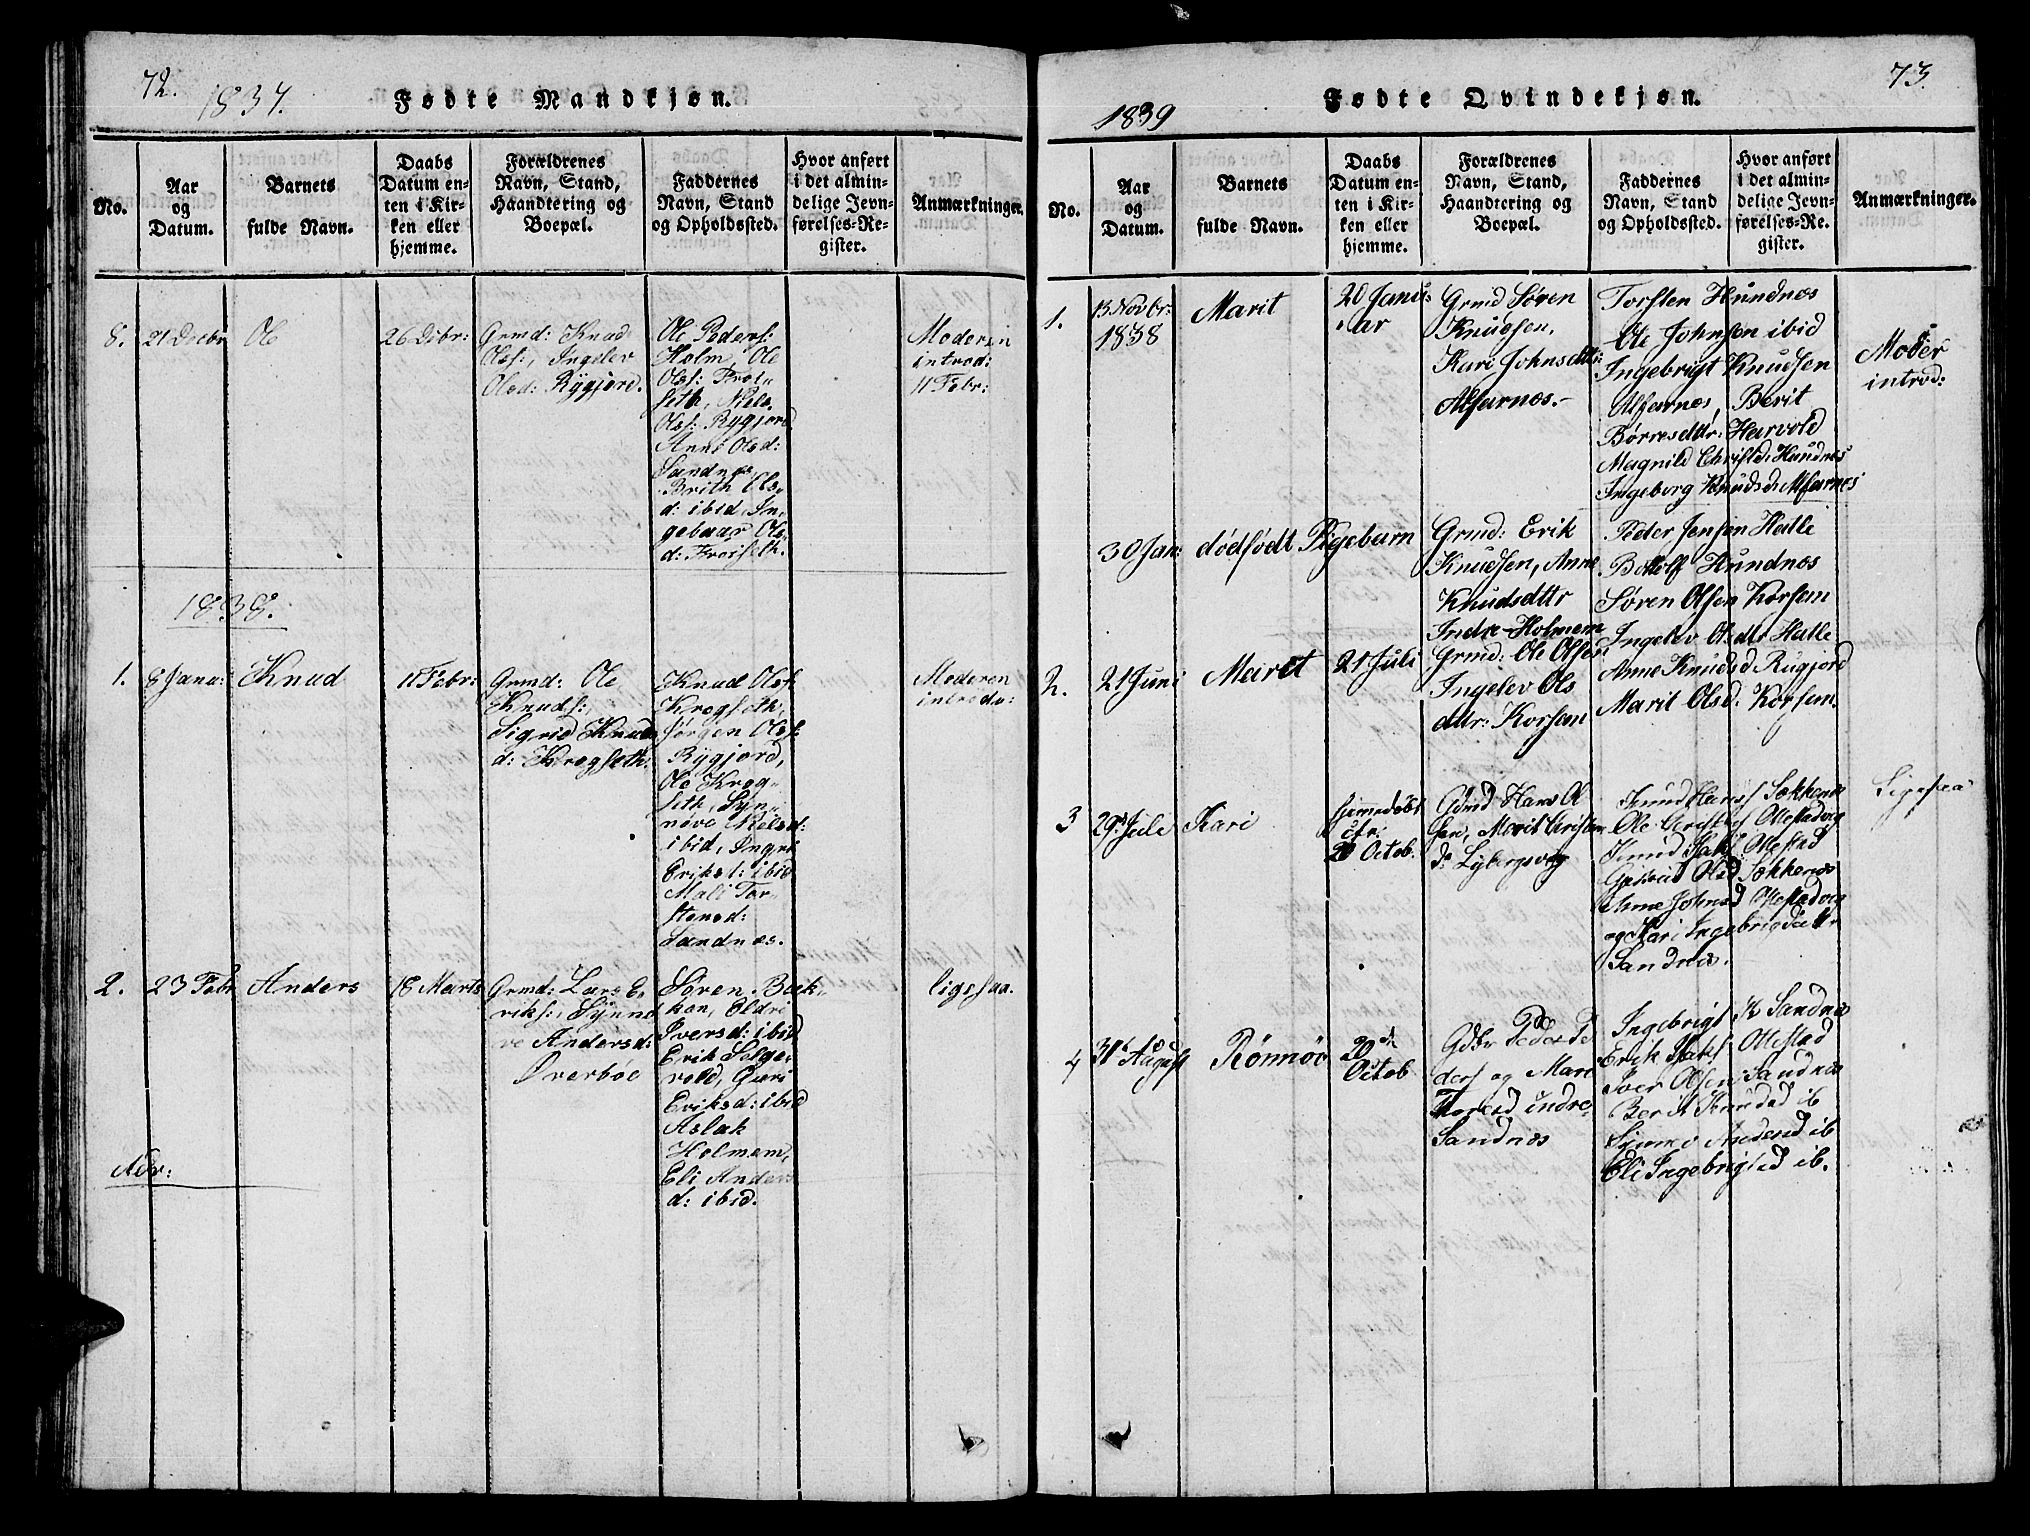 72.
1837.
Fødte Mandkjøn.
No.
Aar
og
Datum.
Barnets
fulde Navn.
Daabs
Datum en-
ten i Kir-
ken eller
hjemme.
Forældrenes
Navn, Stand,
Haandtering og
Boepæl.
Faddernes
Navn, Stand
og Opholdssted.
Hvor anført
i det almin-
delige Jevn-
førelses-Re-
gister.
Anmærkninger.
8.
21 Decbr
Ole
26 Debr:
Grmd: Knud
Olss:, Ingelev
Olsd: Rygjord.
Ole Peders:
Holm, Ole
Olss: Troi-
seth, Niels
Olss: Rygjord
Anne Olsd:
Sandnæs,
Brith Ols-
d: ibid, In-
gebaar Ols-
d: Troiseth.
Moderen
introd:
11 Febr:
1838.
1.
8 Janu:
Knud
11 Febr:
Grmd: Ole
Knuds:,
Sigrid Knud
d: Krogseth.
Knud Olss:
Krogseth,
Jørgen Olss:
Rygjord,
Ole Krog-
seth, Syn-
nøve Nielsd:
ibid, Ingri
Eriksd: ibid
Mali Tor-
stensd:
Sandnæs.
Moderen
introdu:
2.
23 Febr
Anders
18 Marts
Grmd: Lars E-
riks:, Synno
ve Andersd:
Øverbøe
Søren Bæk-
ken, Eldri
Iversd: ibid
Erik Selge-
vold, Guri
Eriksd: ibid
Aslak
Holmem,
Eli Anders
d: ibid.
ligesaa.
Adv:
73.
1839
Fødte Qvindekjøn.
No.
Aar
og
Datum.
Barnets
fulde Navn.
Daabs
Datum en-
ten i Kir-
ken eller
hjemme.
Forældrenes
Navn, Stand,
Haandtering og
Boepæl.
Faddernes
Navn, Stand
og Opholdssted.
Hvor anført
i det almin-
delige Jevn-
førelses-Re-
gister.
Anmærkninger.
1.
13 Novbr:
1838
Marit
20 Janu-
ar
Grmd Søren
Knudsen,
Kari Johnsdtr:
Alfarnes.-
Torsten Hundnæs
Ole Johnsen ibid
Ingebrigt Knudsen
Alfarnes, Berit
Børresdtr: Harvold
Magnild Christd: Hundnæs
Ingeborg Knudsd: Alfarnes
Moder
introd:
30 Jan:
dødfødt Pigebarn
Grmd: Erik
Knudsen, Anne
Knudsdttr
Indre Holmem
Peder Jensen Hatle
Bottolf Hundnæs
Søren Olsen Korsan
Ingelev Olsdtr Hatle
Anne Knudsd Rugjord
Marit Olsd. Korsan.
2.
21 Juni
Marit
21 Juli
Grmd: Ole Olsen
Ingelev Ols
dttr: Korsan
3
29de Juli
Kari
hjemmedøbt
20 Octob.
Gdmd Hans Ol
sen, Marit Christen
d: Lybergsvig
Knud Hanss Søkkenæs
Ole Christens Ottestadvig
Knud Ottestad
Olsd Søkkenæs
Anne Johnsd Ottestadvig
og Kari Ingebrigdattr
Sandnæs.
Ligesaa
4
31te August
Rönnøv
20de
Octob
Gdbr Peder Pe
ders og Mari
Toresd indre
Sandnæs
Ingebrigt K Sandnæs
Erik Ottestad
Iver Olsen Sandnæs
Berit Knudsd ib
Synnøv Andersd ib
Eli Ingebrigtsd ib.